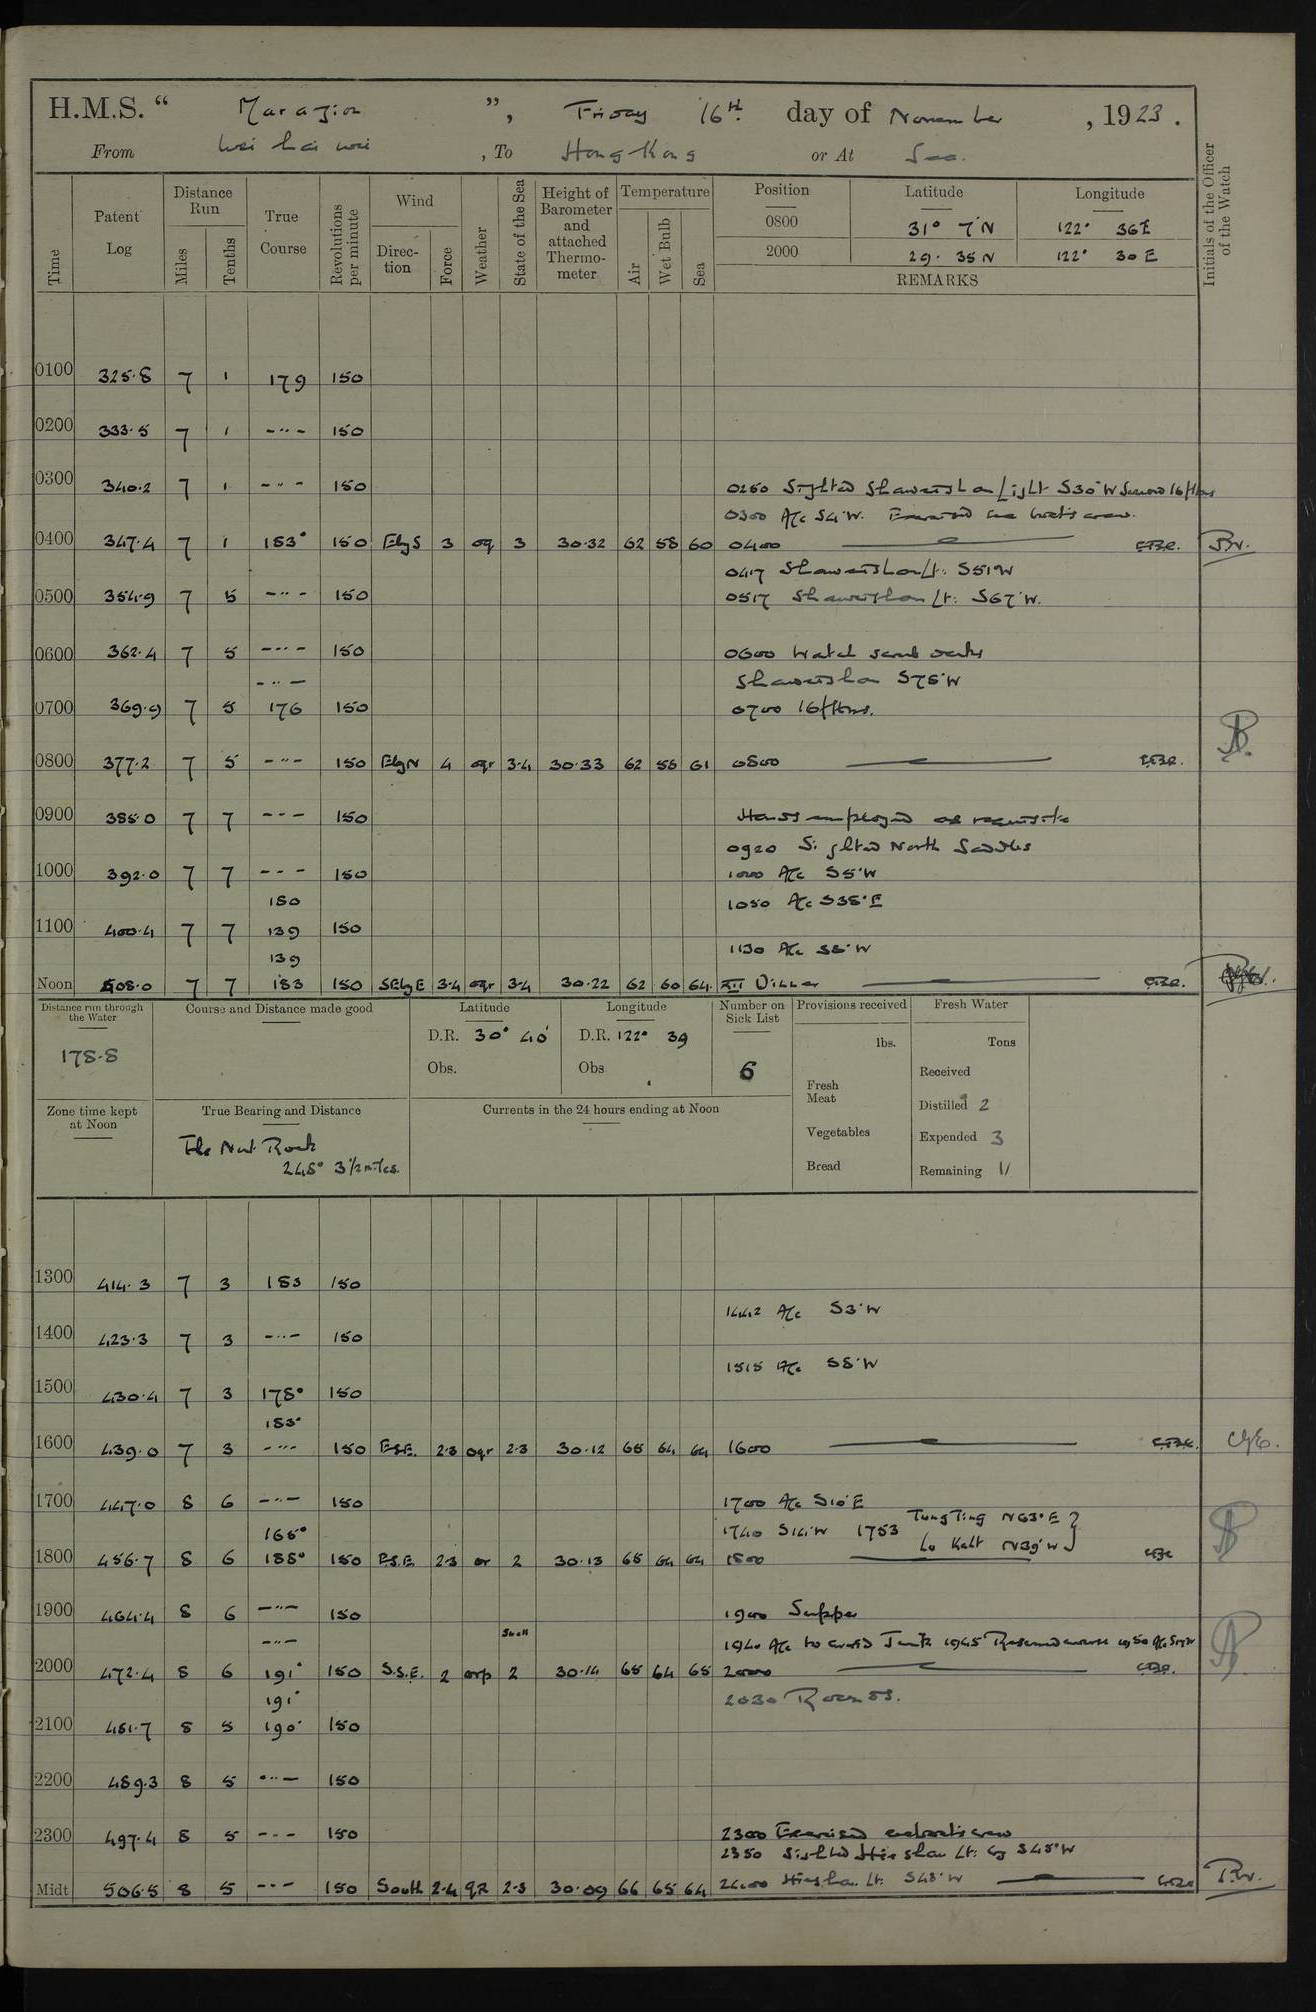 H.M.S. “ Marazion ”, Friday 16th. day of November , 1923.
From Wei hai wei , To Hong Kong or At Sea.
Time Patent Log Distance Run Miles Tenths True Course Revolutions per minute Wind Direction Force Weather State of the Sea Height of Barometer and attached Thermometer Temperature Air Wet Bulb Sea Position Latitude Longitude Initials of the Officer of the Watch
0800 31° 7' N 122° 36 E
2000 29. 35 N 122° 30 E
REMARKS
0100 325.8 7 1 179 150
0200 333.5 7 1 -"- 150
0300 340.2 7 1 -"- 150 0250 Sighted Shaweishan Light S30°W 16 fthms
0300 A/c S4°W. Exercised sea boat's crew.
0400 347.4 7 1 183° 150 EbyS 3 oq 3 30.32 62 58 60 0400
0417 Shaweishan Lt: S51°W
0500 354.9 7 5 -"- 150 0517 Shaweishan Lt: S67°W.
0600 362.4 7 5 -"- 150 0600 Watch scrub decks
-"- Shaweishan S75°W
0700 369.9 7 5 176 150 0700 16 fthms.
0800 377.2 7 5 -"- 150 EbyN 4 oqr 3.4 30.33 62 58 61 0800
0900 385.0 7 7 -"- 150 Hands employed as requisite
0920 Sighted North Saddles
1000 392.0 7 7 -"- 150 1000 A/c S5°W
180 1050 A/c S38°E
1100 400.4 7 7 139 150
139 1130 A/c S8°W
Noon 408.0 7 7 183 150 SEbyE 3.4 oqr 3.4 30.22 62 60 64. XII Dinner
Distance run through the Water Course and Distance made good Latitude Longitude Number on Sick List Provisions received Fresh Water
178.8 D.R. 30° 40' D.R. 122° 39 6 lbs. Tons
Obs. Obs Fresh Meat Received
Zone time kept at Noon True Bearing and Distance Currents in the 24 hours ending at Noon Distilled 2
The Nut Rock Vegetables Expended 3
248° 3½ miles. Bread Remaining 11
1300 414.3 7 3 183 150
1442 A/c S3°W
1400 423.3 7 3 -"- 150
1515 A/c S8°W
1500 430.4 7 3 178° 150
183°
1600 439.0 7 3 -"- 150 E.S.E. 2.3 oqr 2.3 30.12 65 64 64 1600
1700 447.0 8 6 -"- 150 1700 A/c S10°E
165° 1740 S14°W 1753 Tung Ting N63°E
1800 456.7 8 6 188° 150 E.S.E. 2.3 or 2 30.13 65 64 64 1800 N39°W
1900 464.4 8 6 -"- 150 1900 Supper
-"- Swell 1940 A/c to avoid Junk 1945 Resumed course 1950 A/c
2000 472.4 8 6 191° 150 S.S.E. 2 orp 2 30.14 65 64 65 2000
191° 2030 Rounds.
2100 481.7 8 5 190° 150
2200 489.3 8 5 -"- 150
2300 497.4 8 5 -"- 150 2300 Exercised seaboat's crew
2350 Sighted Hieshan Lt: S45°W
Midt 506.5 8 5 -"- 150 South 2.4 qr 2.3 30.09 66 65 64 2400 Hieshan Lt. S48°W